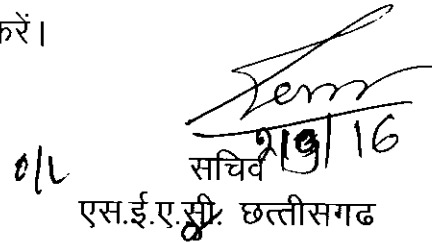 करें।
2/9/16
o/c
सचिव
एस.ई.ए.सी. छत्तीसगढ